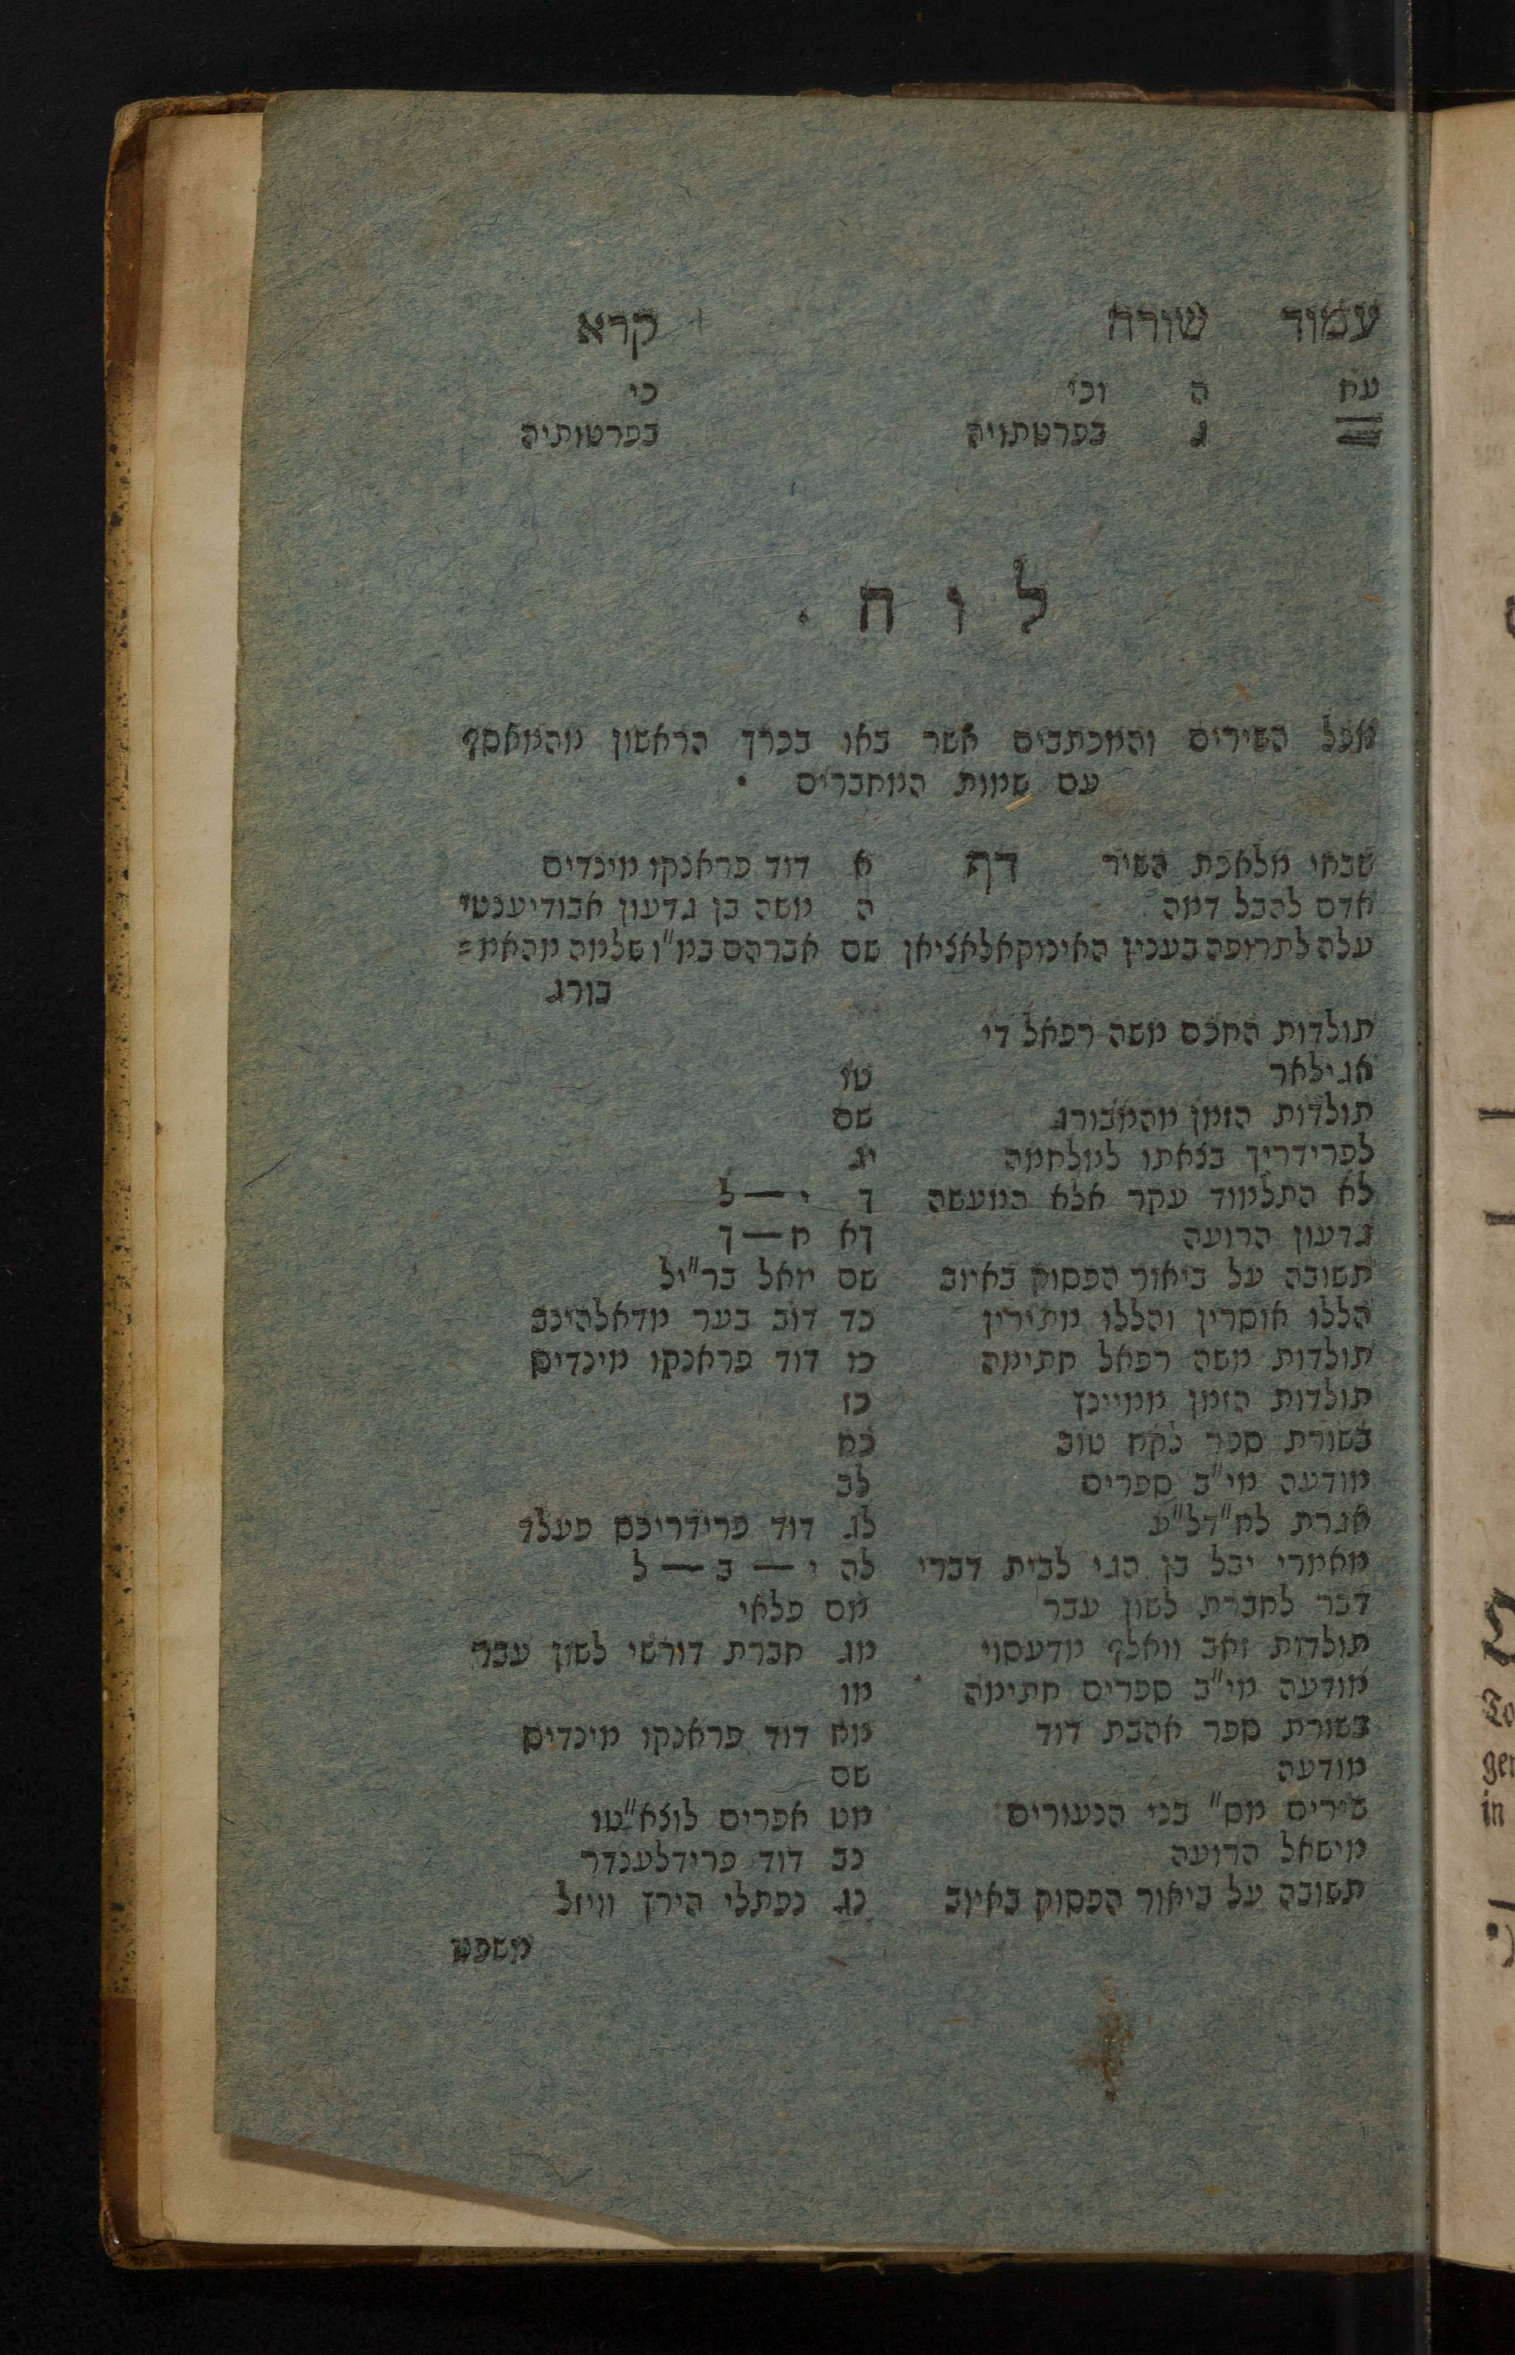 עמוד שורה קרא
עח ה וכי כי
ג בפרטתויה בפרטותיה
לוח.
מכל השירים והמכתבים אשר באו בכרך הראשון מהמאסף
עם שמות המחברים .
שבחי מלאכת השיר דף א דוד פראנקו מינדים
אדם להבל דמה ה משה בן גדעון אבודיענטי
עלה לתרופה בענין האינקאלאציאן שם אברהם במ"ו שלמה מהאמ=
בורג
תולדות החכם משה רפאל די
אגילאר טז
תולדות הזמן מהמבורג שם
לפרידריך בצאתו למלחמה יג
לא התלמוד עקר אלא המעשה ך י—ל
גדעון הרועה ךא ח—ך
תשובה על ביאור הפסוק באיוב שם יואל בר"יל
הללו אוסרין והללו מתירין כד דוב בער מדאלהינב
תולדות משה רפאל חתימה כו דוד פראנקו מינדים
תולדות הזמן ממיינץ כז
בשורת ספר לקח טוב כח
מודעה מי"ב ספרים לב
אגרת לח"דל"ע לג דוד פרידריכס פעלד
מאמרי יבל בן הגי לבית דברי לה י—ב—ל
דבר לחברת לשון עבר מס פלאי
תולדות זאב וואלף מדעסוי מג חברת דורשי לשון עבר
מודעה מי"ב ספרים חתימה מו
בשורת ספר אהבת דוד מח דוד פראנקו מינדים
מודעה שם
שירים מס" בני הנעורים מט אפרים לוצא"טו
מישאל הרועה נב דוד פרידלענדר
תשובה על ביאור הפסוק באיוב נג נפתלי הירץ וויזל
משפט